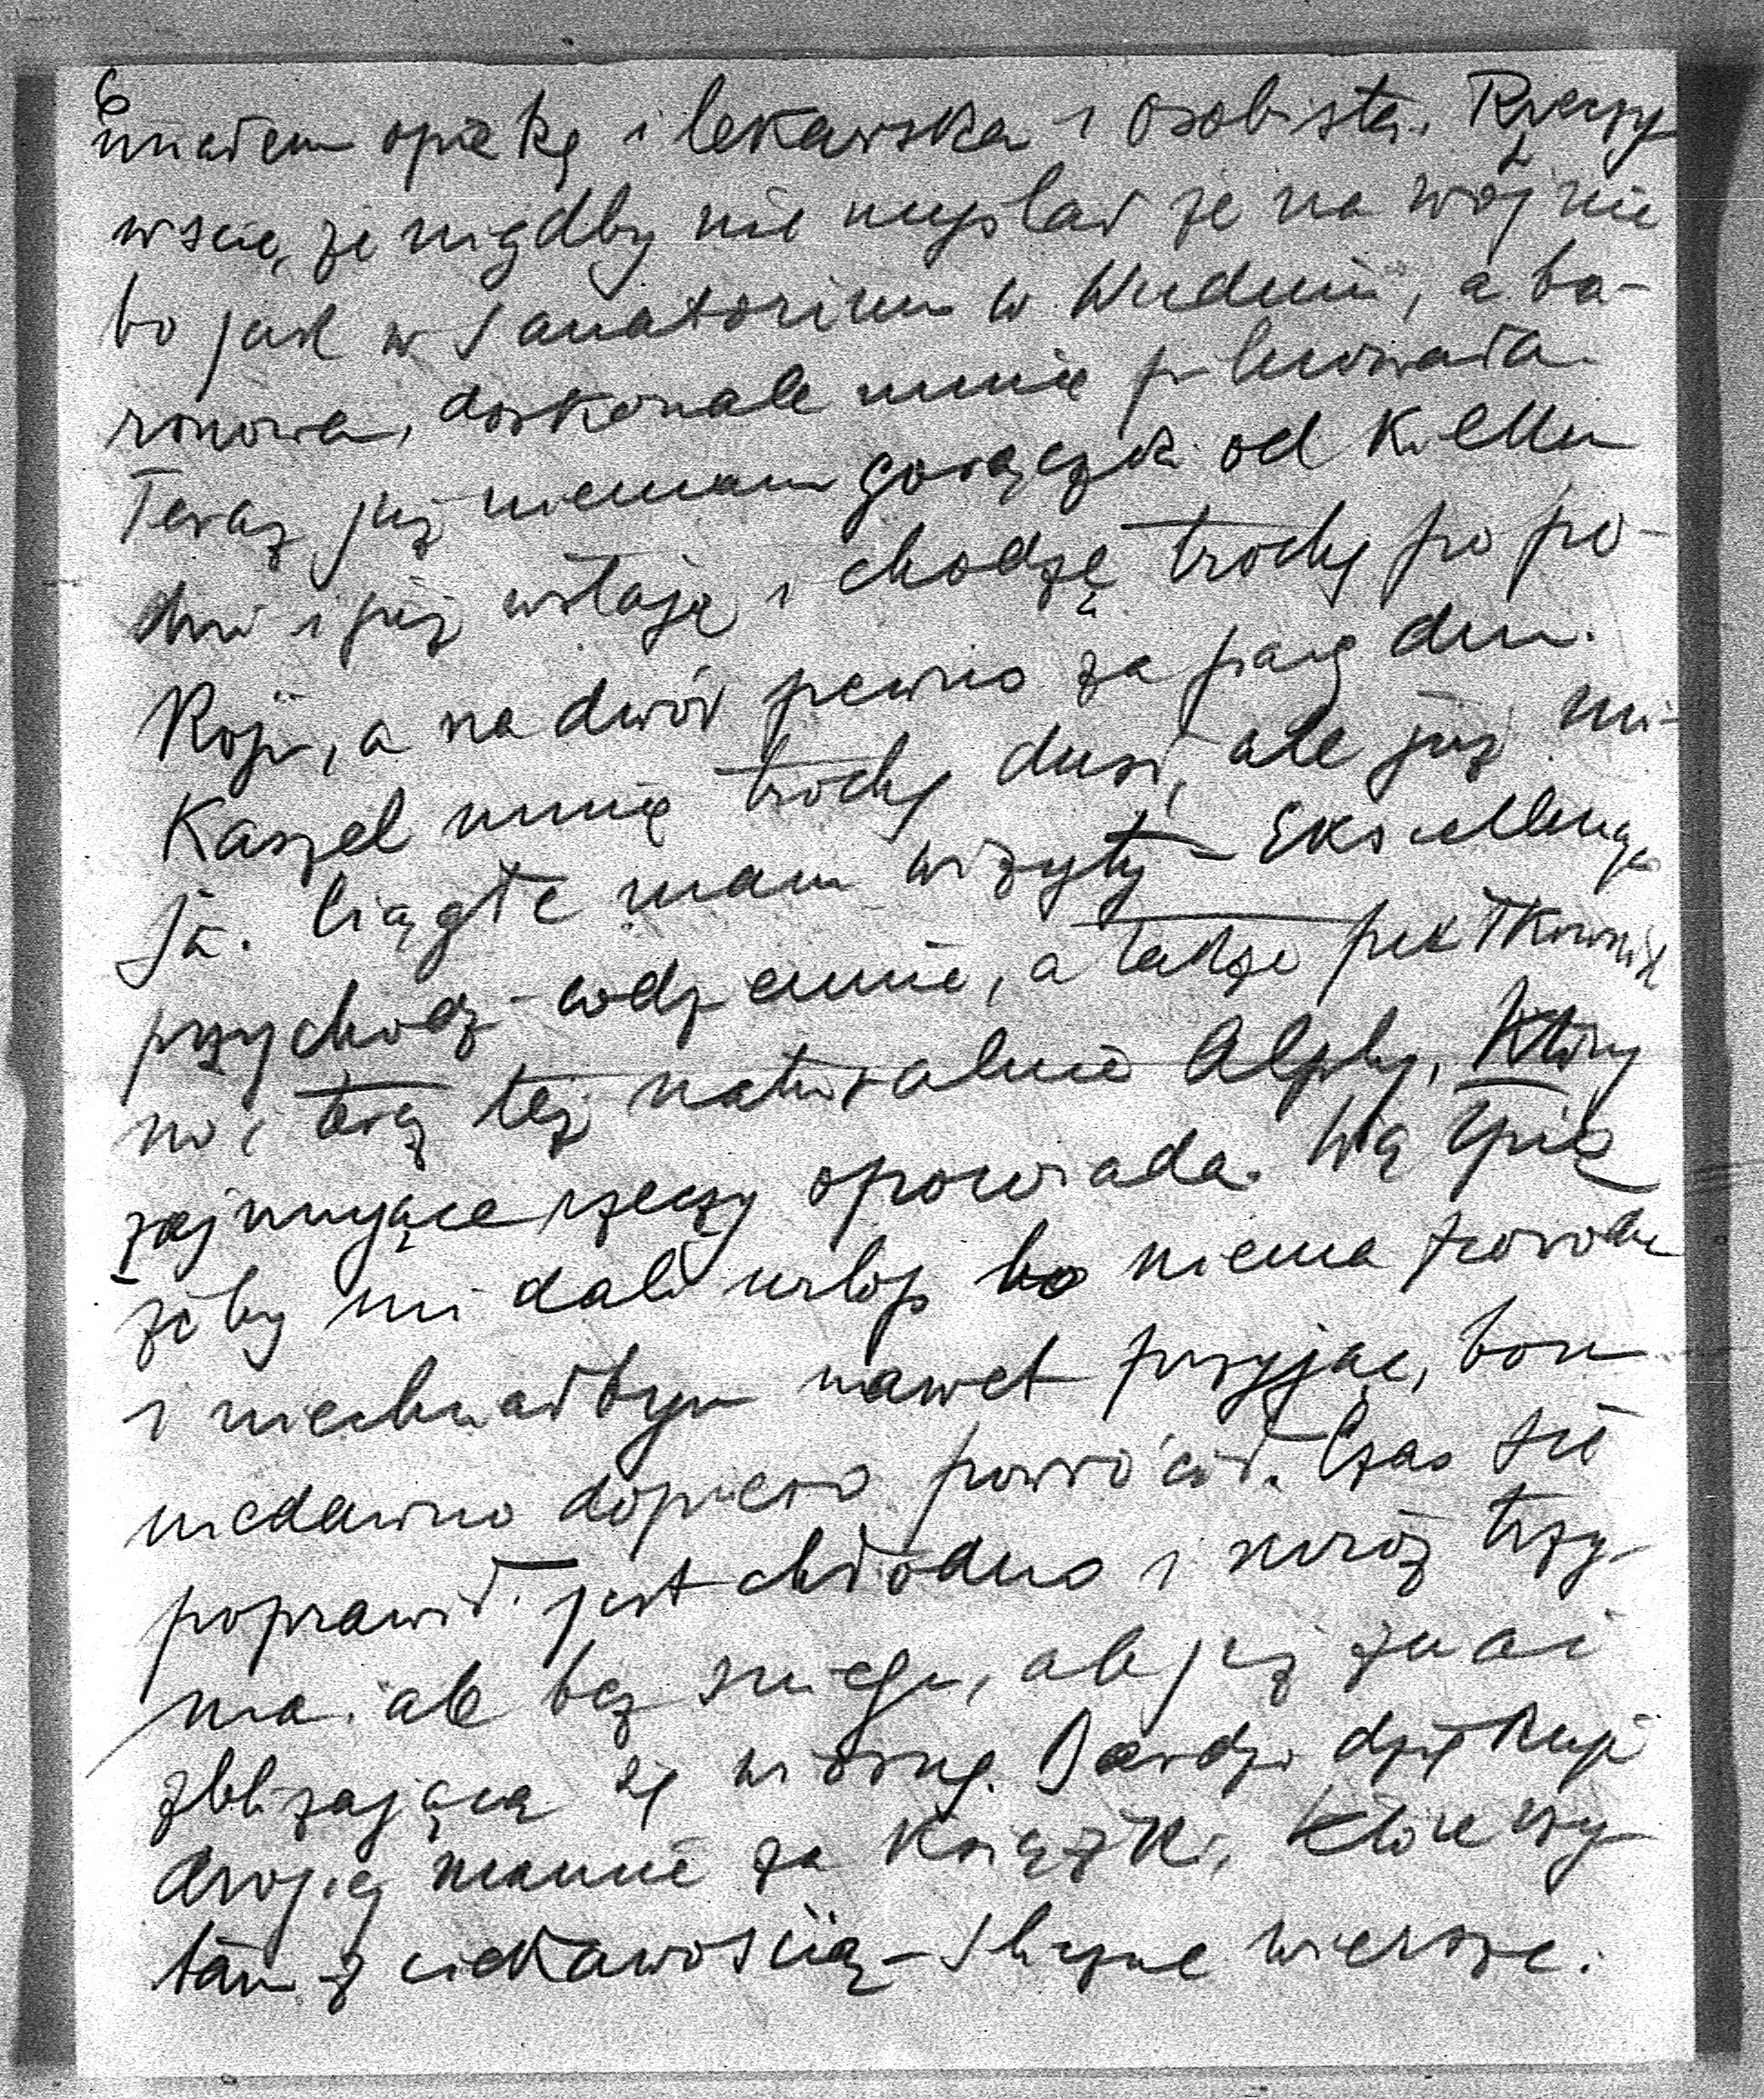 6
miałem opiekę i lekarska i osobistą. Rzeczy
wście, że nigdby nie myślał że na wojnie
bo jak w Sanatorium w Wiedniu, a ba-
ronowa, doskonale mnie pilnowała.
Teraz już niemam gorączki od kilku
dni i już wstaję i chodzę trochę po po-
koju, a na dwór pewno za parę dni.
Kaszel mnie trochę dusi, ale już mi-
ja. Ciągle mam wizyty - Ekscellencja
przychodz codziennie, a także pułkownik
no i też naturalnie Alphy, który
zajmujące rzeczy opowiada. Wątpię
żeby mi dali urlop bo niema powodu
i niechciałbym nawet przyjąć, bom
niedawno dopiero powrócił. Czas się
poprawił. jest chłodno i mróz trzy-
ma. ale bez śniegu, ale już znać
zbliżającą się wiosnę. Bardzo dziękuję
drogiej mamie za książki, które czy-
tam z ciekawością - śliczne wiersze.